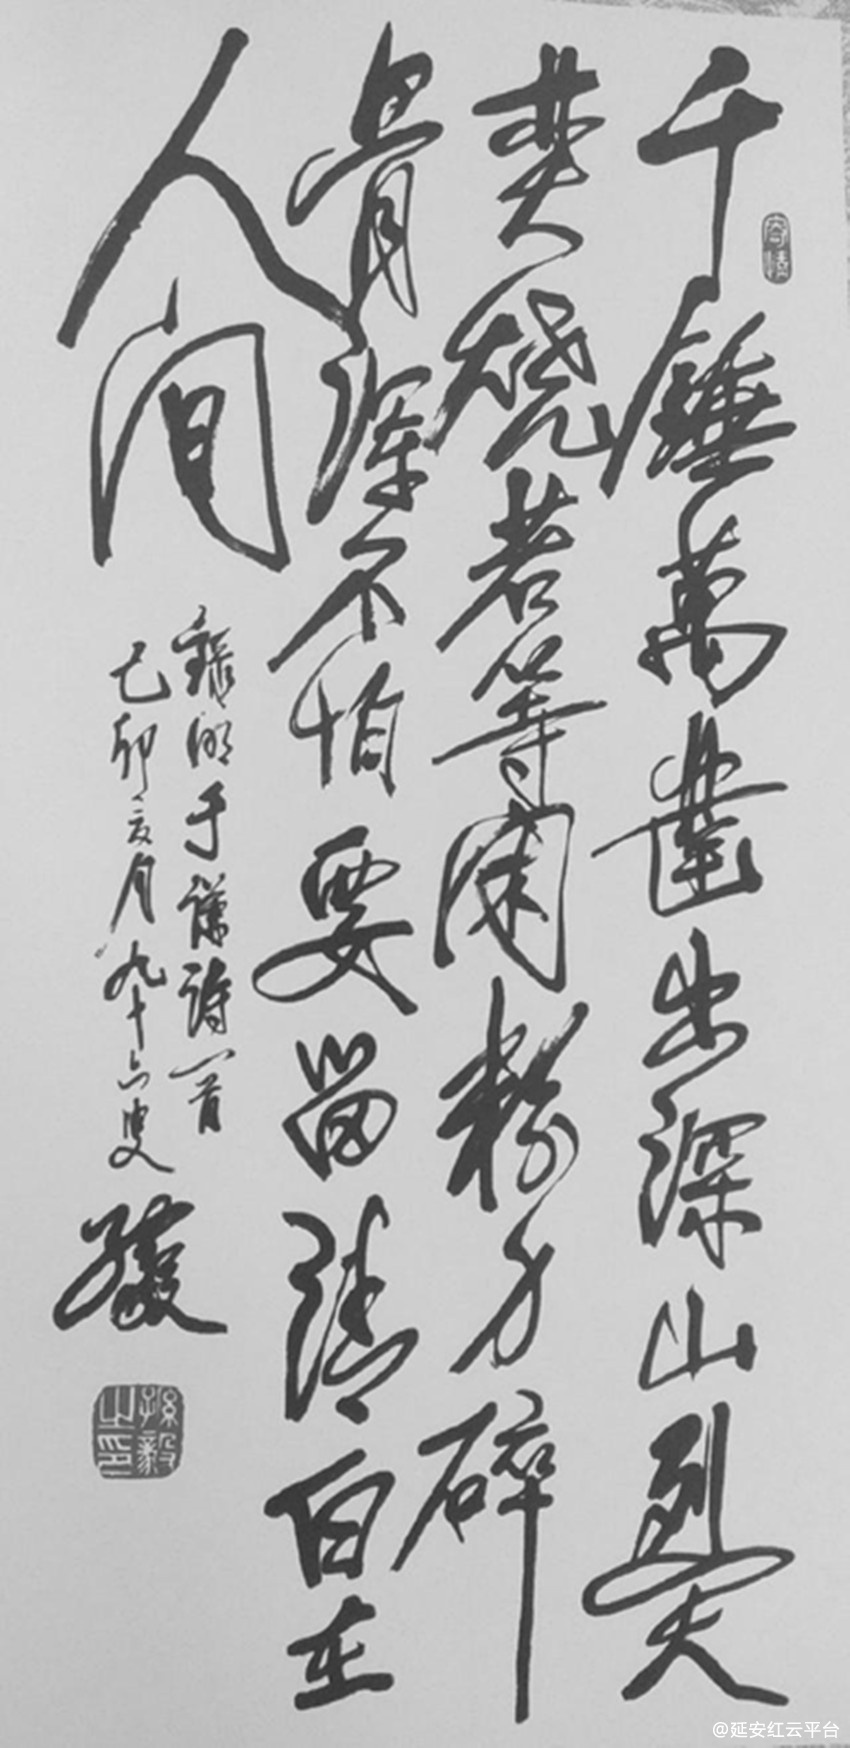 千錘萬鑿出深山烈火
焚燒若等閑粉身碎
骨渾不怕要留清白在
人間
錄明于謙詩一首
己卯亥月九十六叟
孫毅
孫毅之印
@延安红云平台